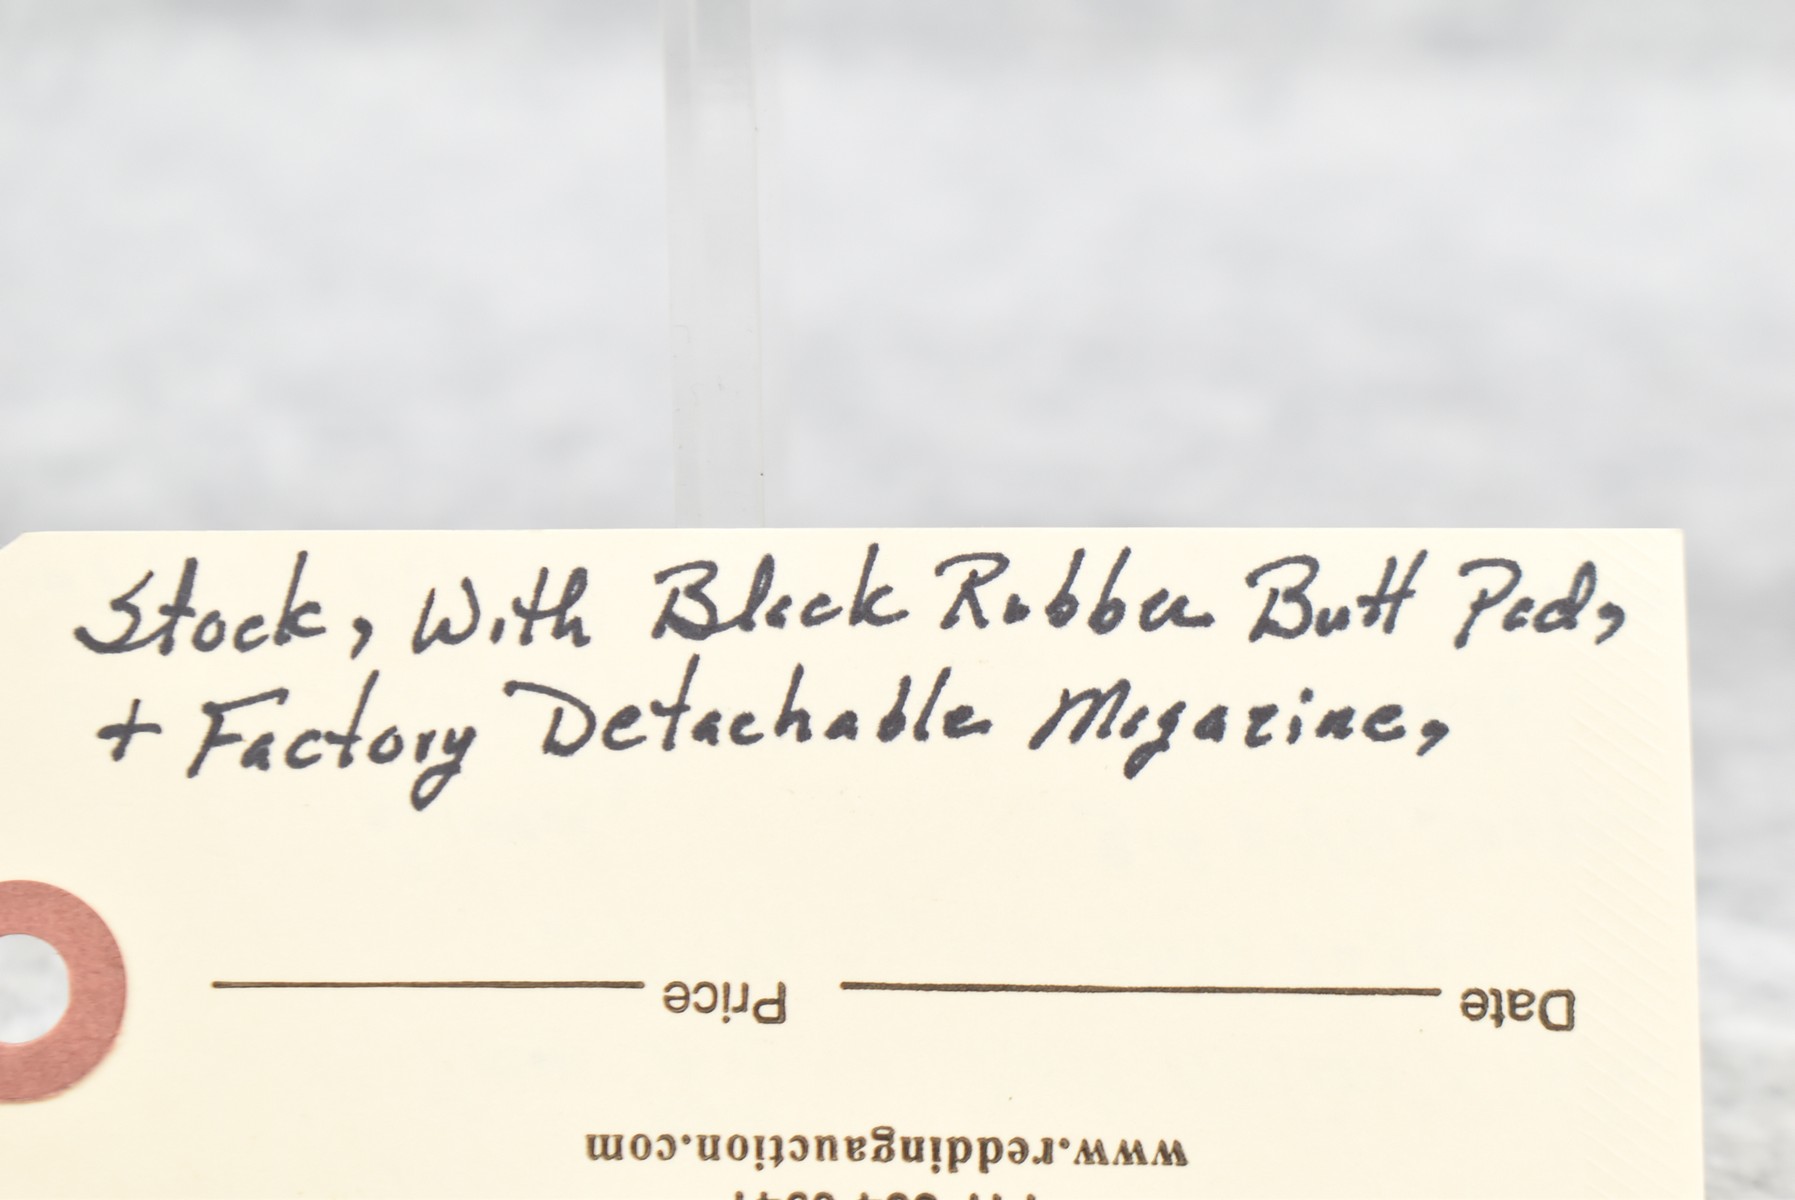 Stock, With Black Rubber Butt Pad,
+ Factory Detachable Magazine,
Date Price
www.reddingauction.com